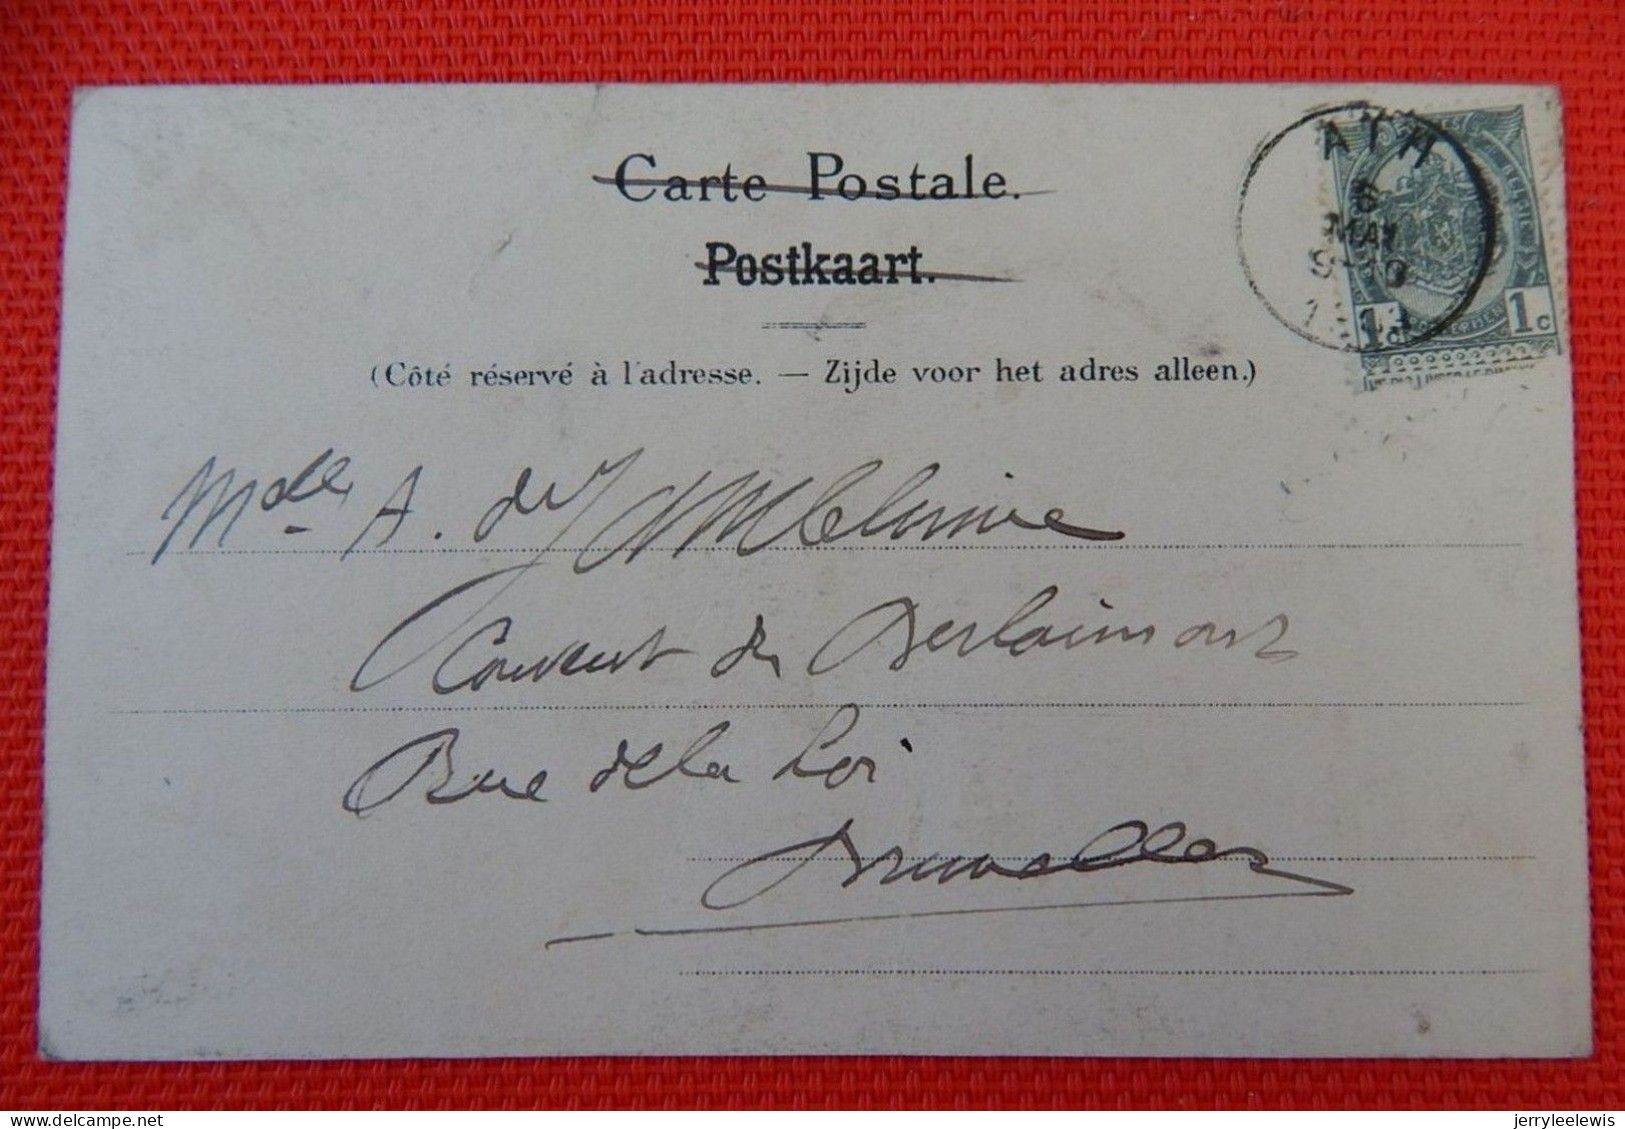 Carte Postale.
Postkaart.
(Côté réservé à l'adresse. — Zijde voor het adres alleen.)
ATH
6
MAI
9-10
1 C 1 C
Mdle A. de
Couvent de Berlaimont
Rue de la Loi
Bruxelles
delcampe.net
jerryleelewis